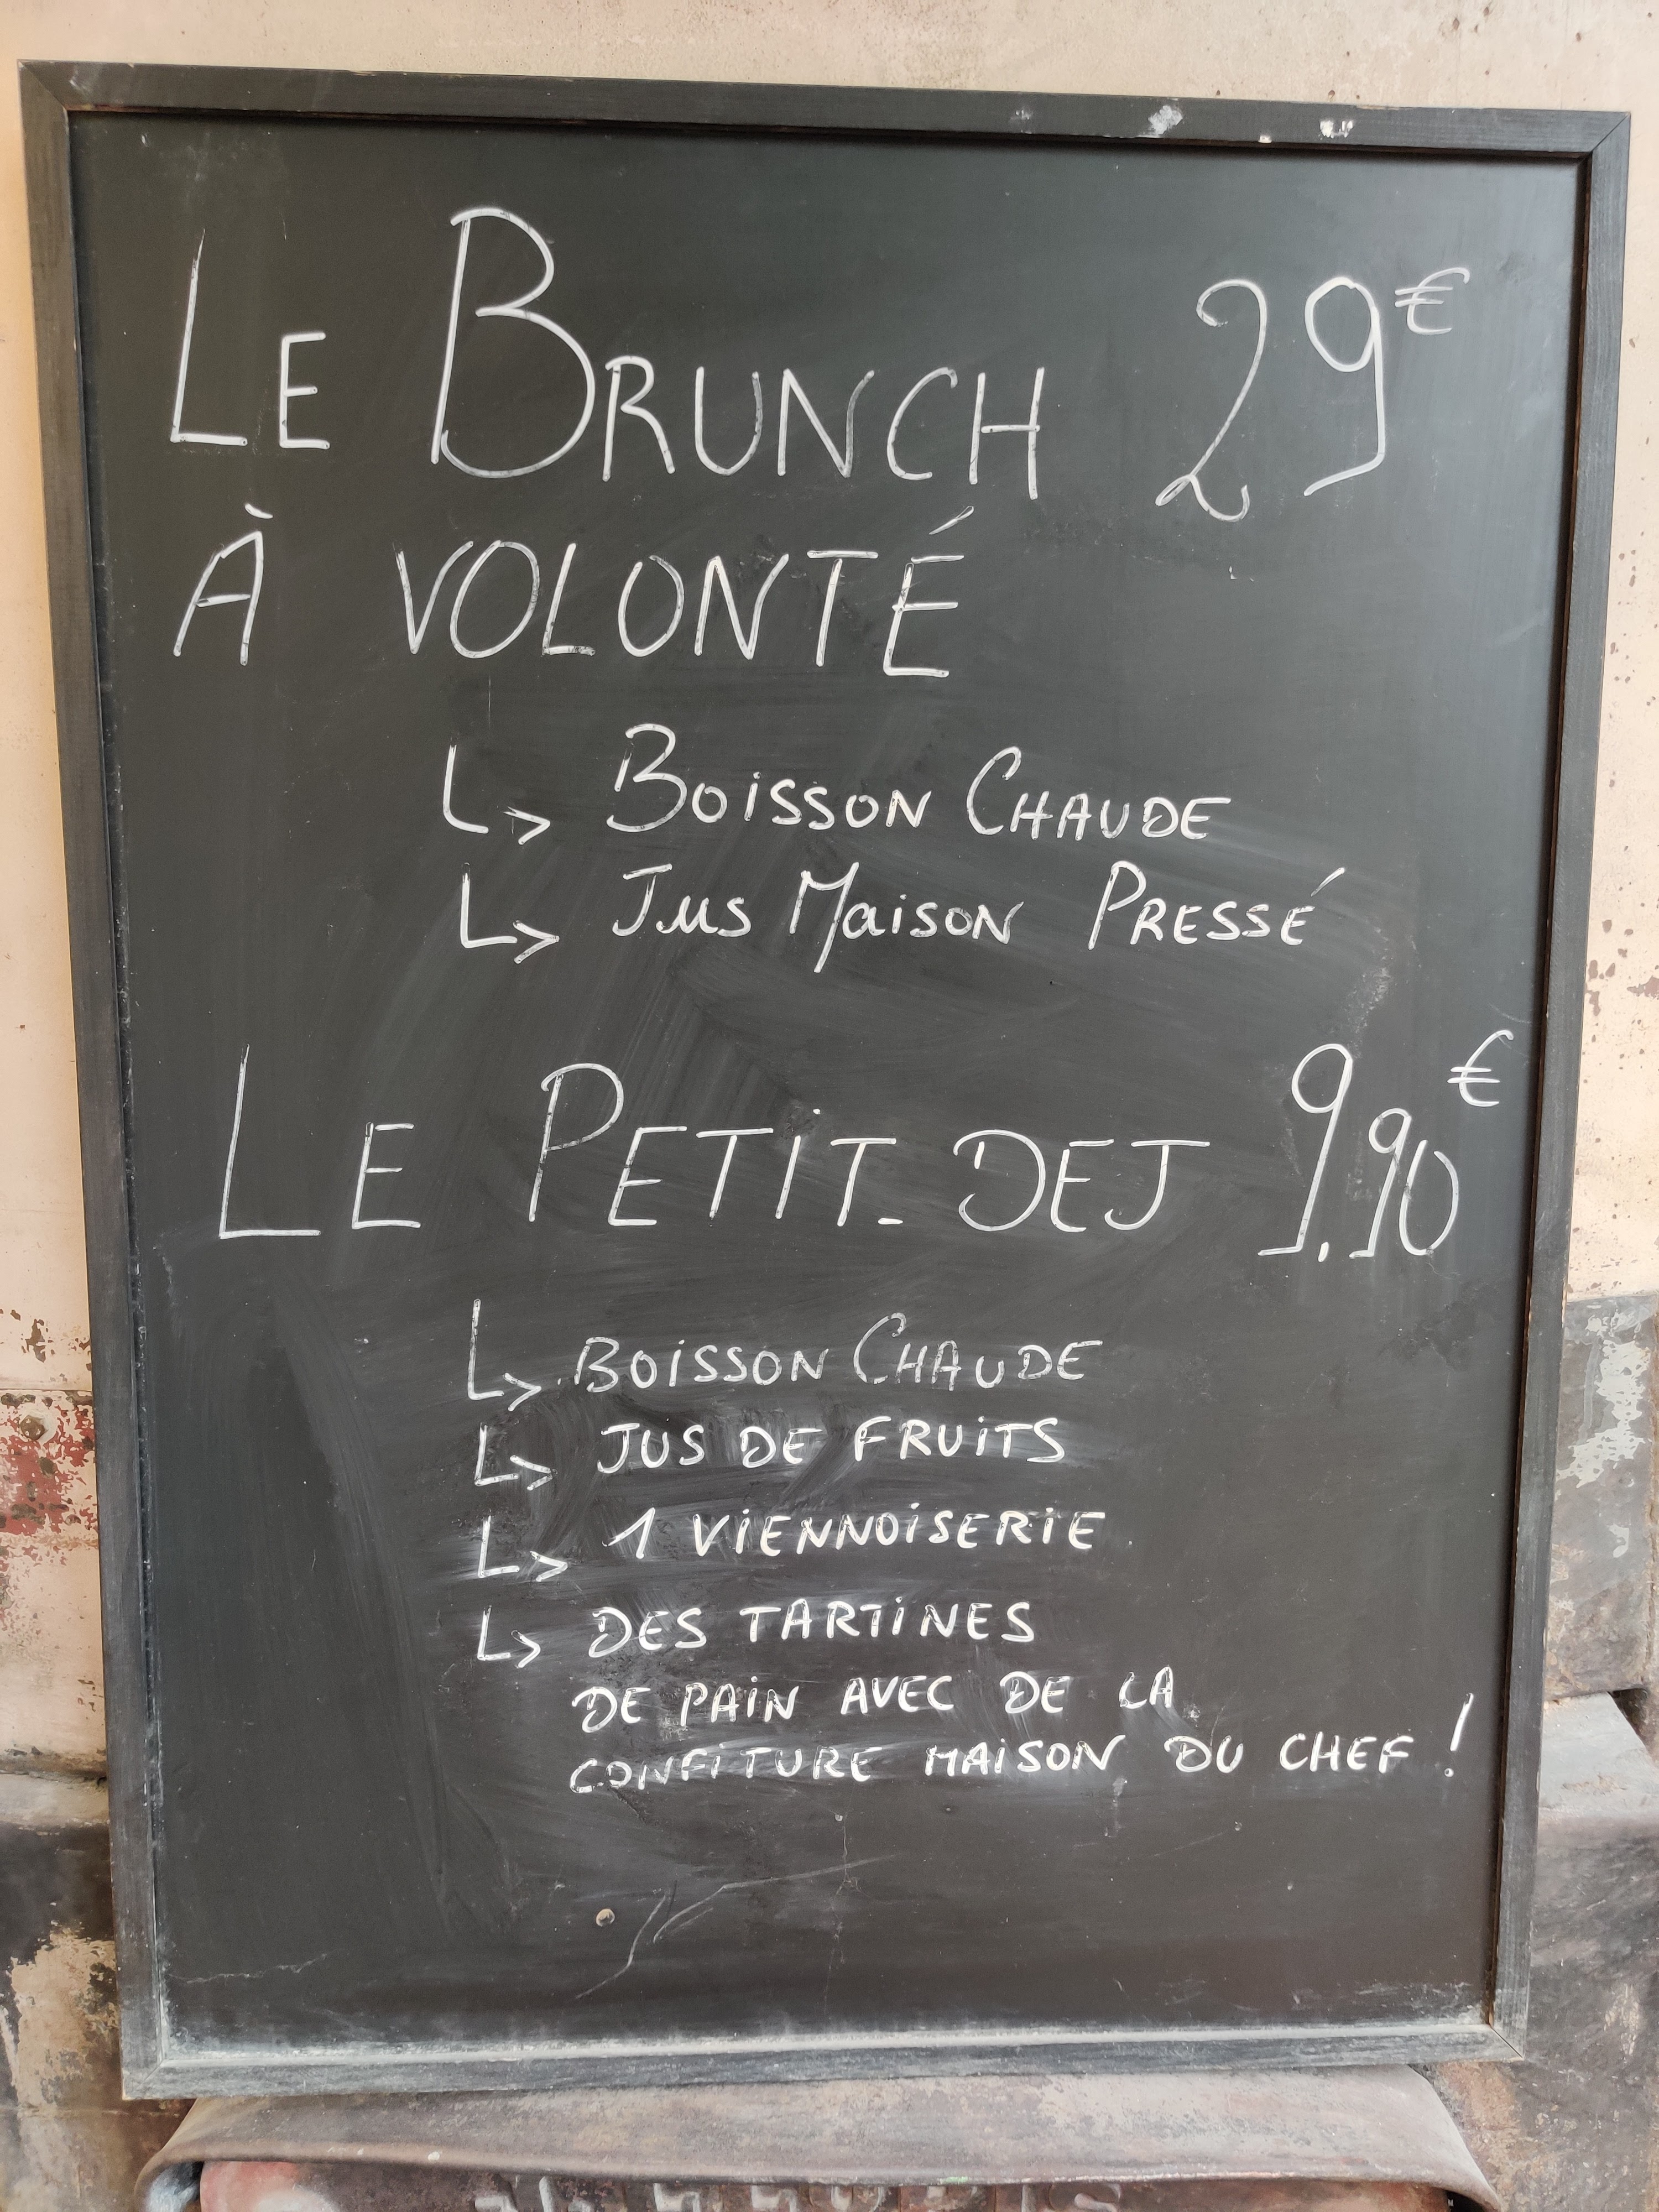 LE BRUNCH 29€
À VOLONTÉ
↳ BOISSON CHAUDE
↳ JUS MAISON PRESSÉ
LE PETIT-DEJ 9.90€
↳ BOISSON CHAUDE
↳ JUS DE FRUITS
↳ 1 VIENNOISERIE
↳ DES TARTINES
DE PAIN AVEC DE LA
CONFITURE MAISON DU CHEF !